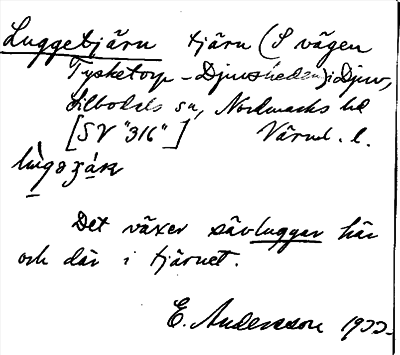 Luggetjärn tjärn (S vägen
Tysketorp - Djurskedan) i Djur,
Silbodals sn, Nordmarks hd
[SV "316"] Värml. l.
Det växer sävluggar här
och där i tjärnet.
E. Andersson 1933